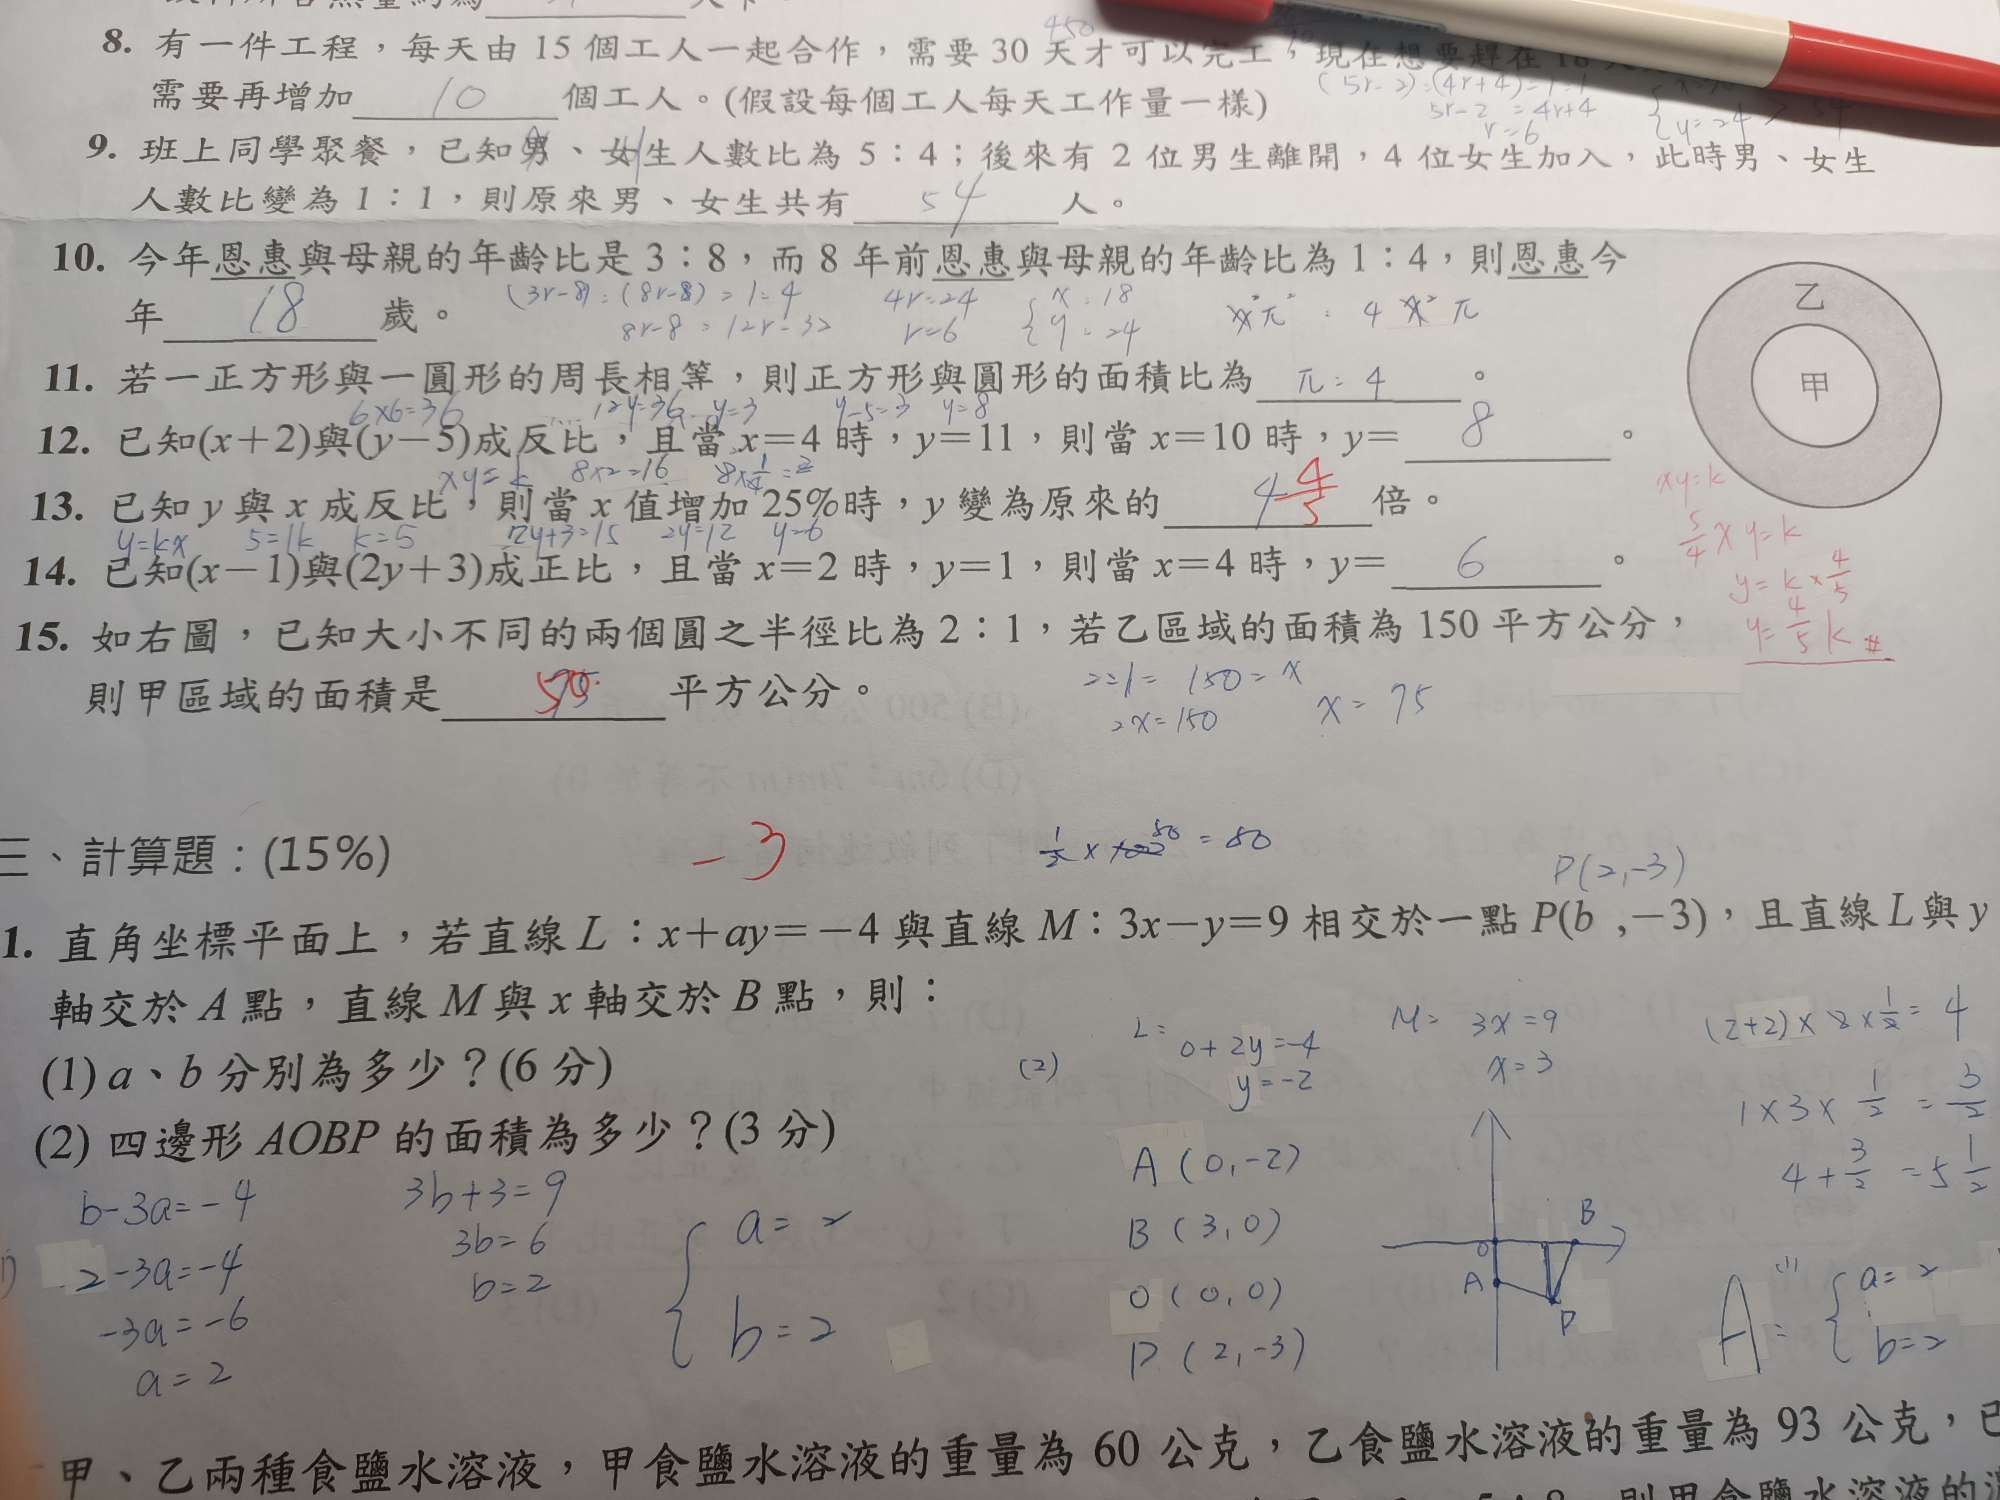 8. 有一件工程，每天由 15 個工人一起合作，需要 30 天才可以完工，現在想要趕在 18 天
450
需要再增加 10 個工人。(假設每個工人每天工作量一樣)
(5r-2):(4r+4)=1:1
5r-2=4r+4
r=6
9. 班上同學聚餐，已知男、女生人數比為 5：4；後來有 2 位男生離開，4 位女生加入，此時男、女生
人數比變為 1：1，則原來男、女生共有 54 人。
10. 今年恩惠與母親的年齡比是 3：8，而 8 年前恩惠與母親的年齡比為 1：4，則恩惠今
年 18 歲。
(3r-8):(8r-8)=1:4
8r-8=12r-32
4r=24
r=6
x=18
y=24
乙
甲
11. 若一正方形與一圓形的周長相等，則正方形與圓形的面積比為 π:4 。
6×6=36 12y=36 y=3 y-5=3 y=8
12. 已知(x＋2)與(y－5)成反比，且當 x＝4 時，y＝11，則當 x＝10 時，y＝ 8 。
xy=k 8×2=16
13. 已知 y 與 x 成反比，則當 x 值增加 25%時，y 變為原來的 4/5 倍。
xy=k
5/4 x y=k
y=k×4/5
y=4/5 k #
y=kx 5=1k k=5 2y+3=15 2y=12 y=6
14. 已知(x－1)與(2y＋3)成正比，且當 x＝2 時，y＝1，則當 x＝4 時，y＝ 6 。
15. 如右圖，已知大小不同的兩個圓之半徑比為 2：1，若乙區域的面積為 150 平方公分，
則甲區域的面積是 50 平方公分。
2:1=150=x
2x=150
x=75
三、計算題：(15%)
-3
=80
P(2,-3)
1. 直角坐標平面上，若直線 L：x＋ay＝－4 與直線 M：3x－y＝9 相交於一點 P(b ,－3)，且直線 L 與 y
軸交於 A 點，直線 M 與 x 軸交於 B 點，則：
(1) a、b 分別為多少？(6 分)
(2) 四邊形 AOBP 的面積為多少？(3 分)
b-3a=-4
2-3a=-4
-3a=-6
a=2
3b+3=9
3b=6
b=2
a=2
b=2
(2)
L= 0+2y=-4
y=-2
M= 3x=9
x=3
A(0,-2)
B(3,0)
O(0,0)
P(2,-3)
B
O
A
P
1×3×1/2=3/2
4+3/2=5 1/2
A= (1)
a=2
b=2
甲、乙兩種食鹽水溶液，甲食鹽水溶液的重量為 60 公克，乙食鹽水溶液的重量為 93 公克，已